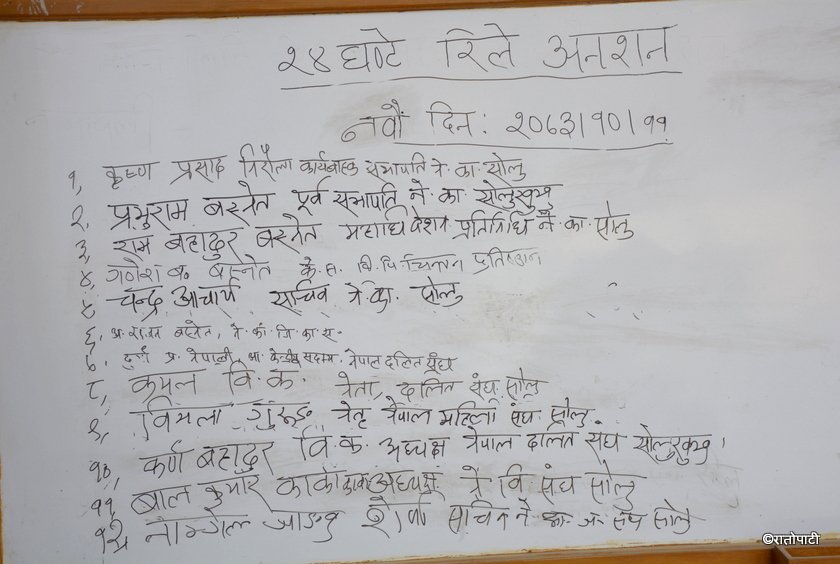 २४ घण्टे रिले अनशन
नवौं दिन: २०७३।१०।११
१, कृष्ण प्रसाद सिरौला कार्यबाहक सभापति ने. का. सोलु
२, प्रभुराम बस्नेत पूर्व सभापति ने. का सोलुखुम्बु
३, राम बहादुर बस्नेत महाधिवेशन प्रतिनिधि ने. का. सोलु
४, गणेश ब. बस्नेत के. स. बि. पि. चिन्तन प्रतिष्ठान
५ चन्द्र आचार्य सचिव ने का. सोलु
६, बस्नेत, ने. का. जि. का. स.
७. दुर्गा प्र. नेपाली, केन्द्रीय सदस्य. नेपाल दलित संघ
८, कमल वि. क. नेता, दलित संघ सोलु
९, विमला गुरूङ नेतृ नेपाल महिला संघ सोलु
१०, कर्ण बहादुर वि. क. अध्यक्ष नेपाल दलित संघ सोलुखुम्बु ।
११, बाल कुमार अध्यक्ष ने वि संघ सोलु
१२, शेर्पा सचिव ने का. ज. संघ सोलु
©रातोपाटी